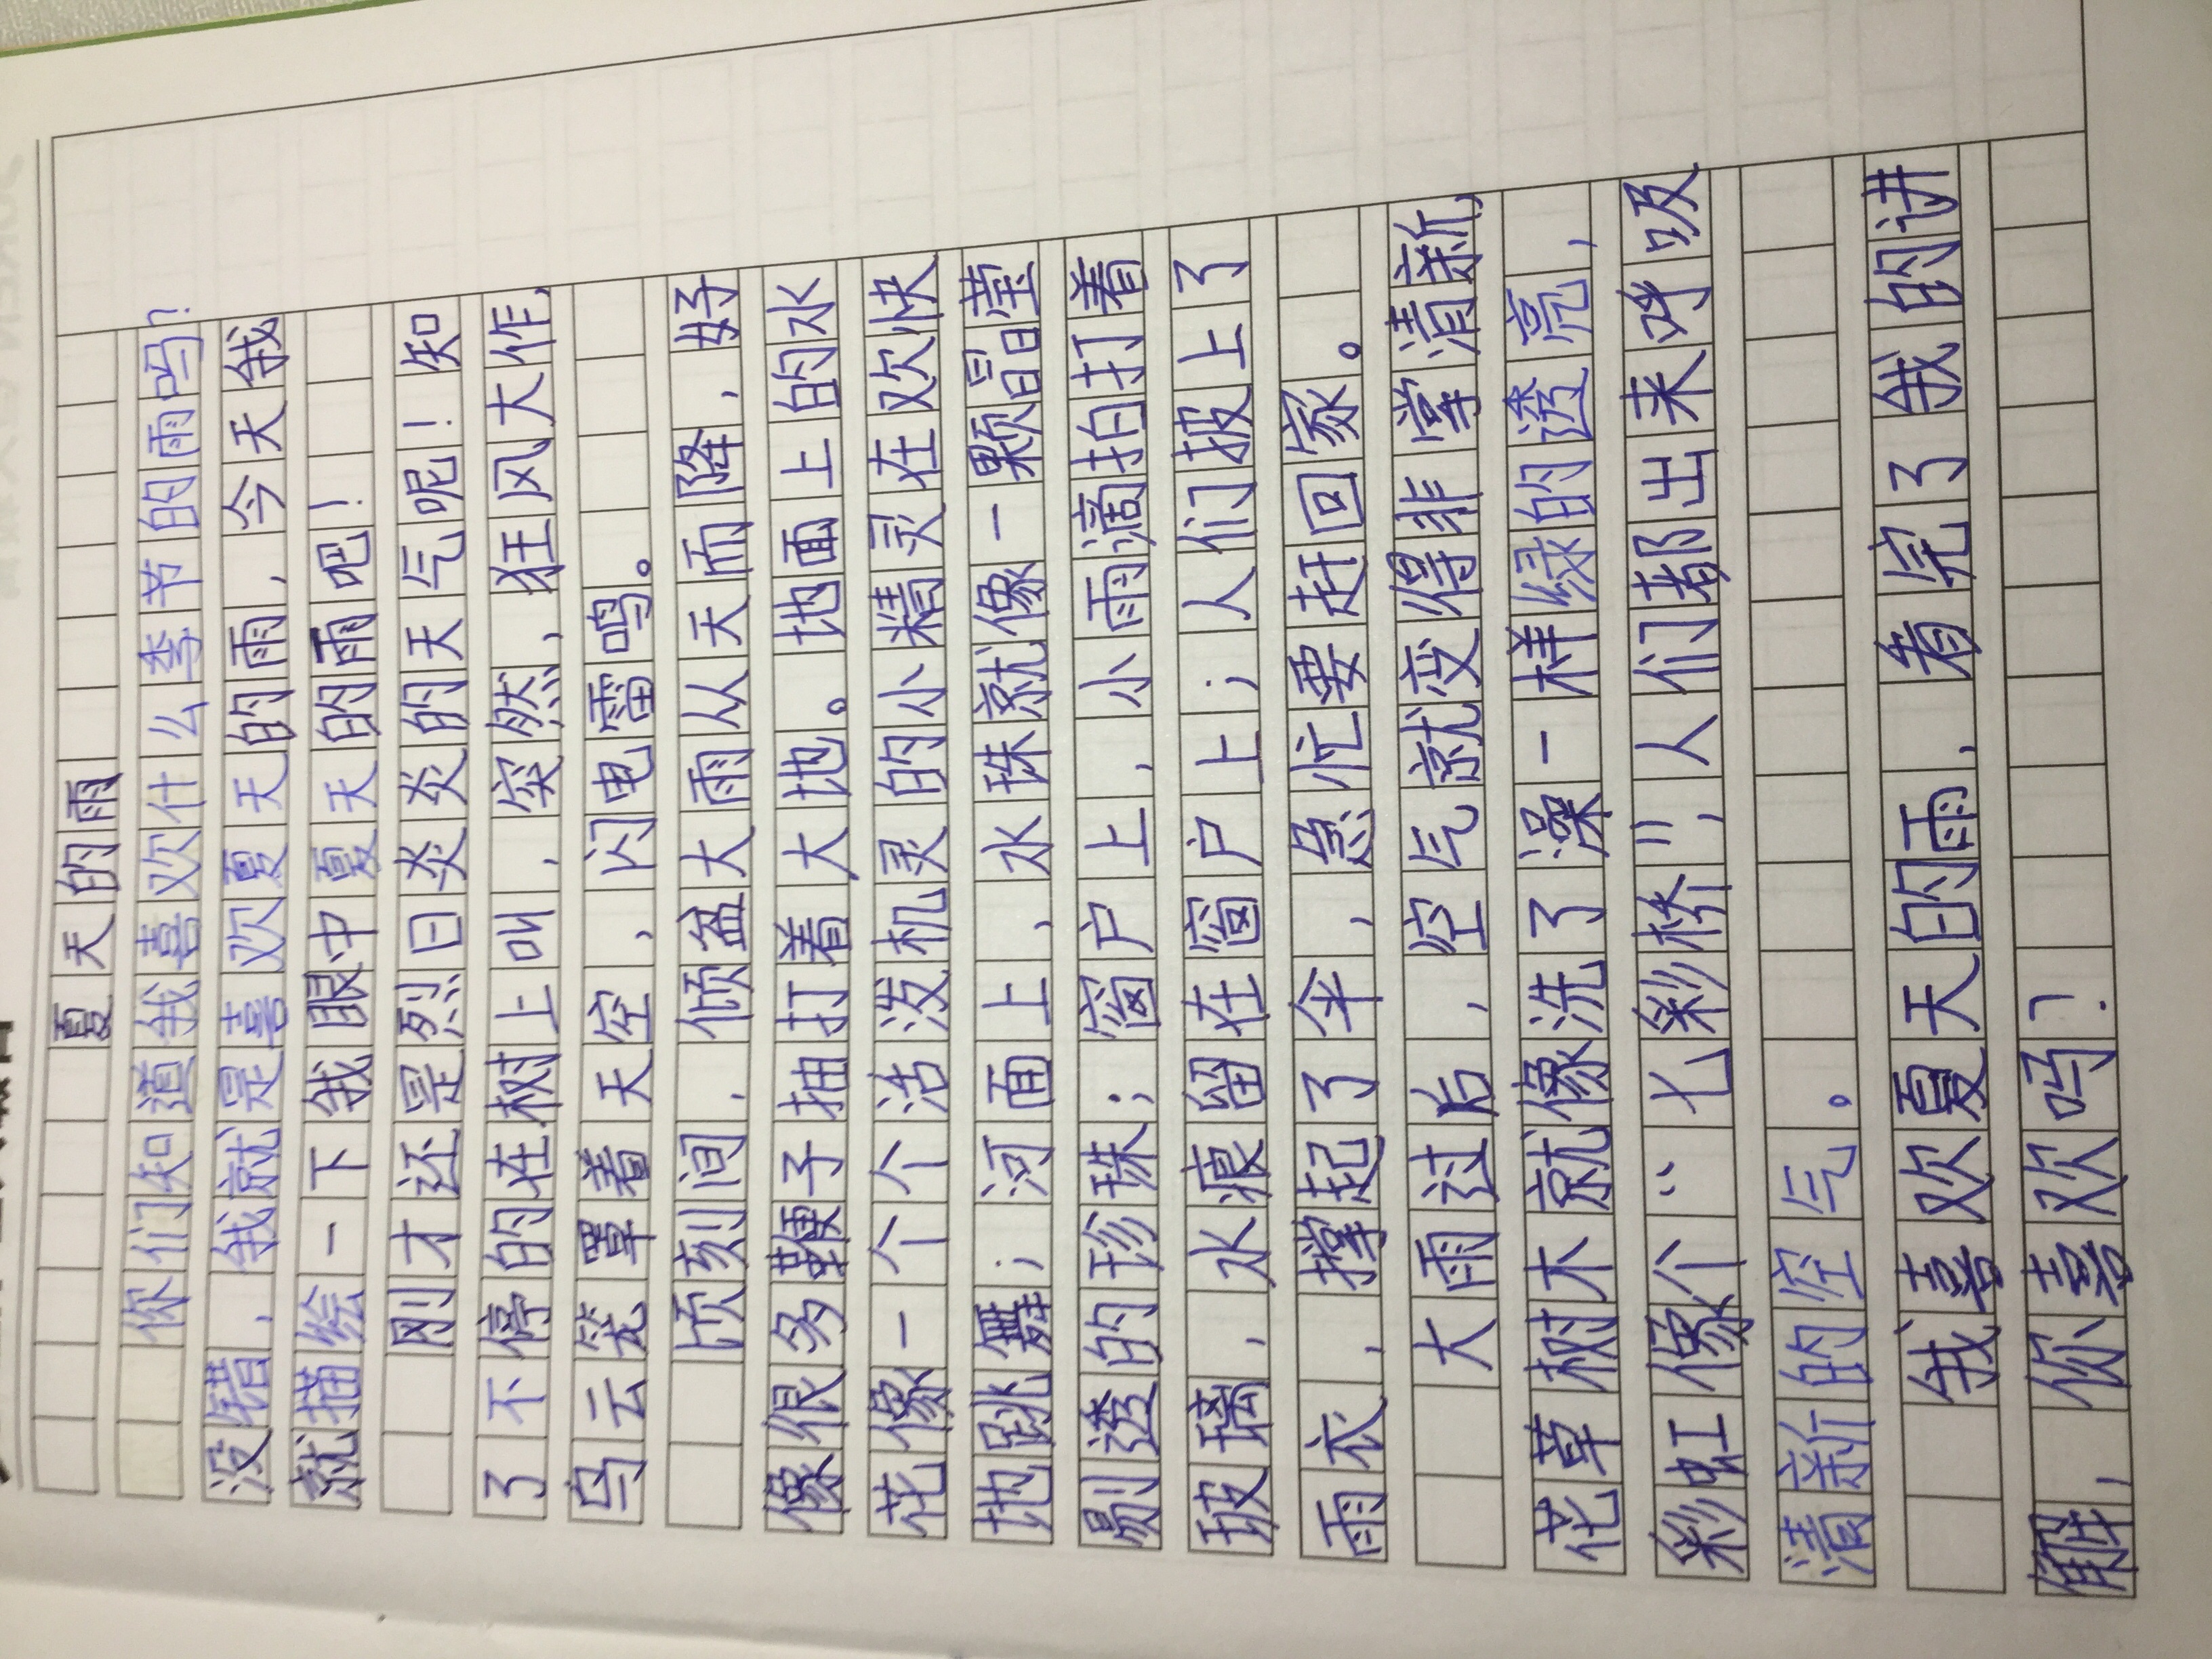 夏天的雨
你们知道我喜欢什么季节的雨吗?
没错,我就是喜欢夏天的雨,今天我
就描绘一下我眼中夏天的雨吧!
刚才还是烈日炎炎的天气呢!知
了不停的在树上叫,突然,狂风大作,
乌云笼罩着天空,闪电雷鸣。
顷刻间,倾盆大雨从天而降,好
像很多鞭子抽打着大地。地面上的水
花像一个个活泼机灵的小精灵在欢快
地跳舞;河面上,水珠就像一颗冒莹
剔透的珍珠;窗户上,小雨滴拍打着
玻璃,水痕留在窗户上;人们披上了
雨衣,撑起了伞,急忙要赶回家。
大雨过后,空气就变得非常清新,
花草树木就像洗了澡一样绿的透亮,
彩虹像个“七彩桥”,人们都出来呼吸
清新的空气。
我喜欢夏天的雨,看完了我的讲
解,你喜欢吗?